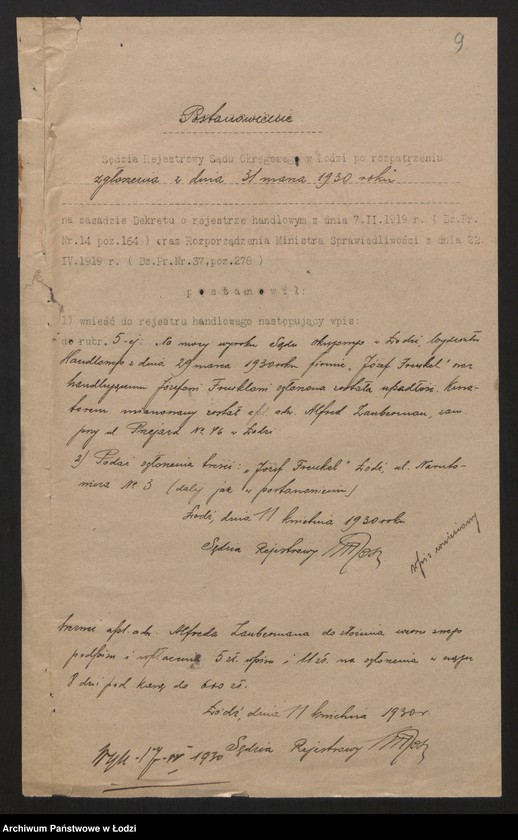 9
Postanowienie
Sędzia Rejestrowy Sądu Okręgowego w Łodzi po rozpatrzeniu
zgłoszenia z dnia 31 marca 1930 roku
na zasadzie Dekretu o rejestrze handlowym z dnia 7.II.1919 r. ( Dz.Pr.
Nr.14 poz.164 ) oraz Rozporządzenia Ministra Sprawiedliwości z dnia 22
IV.1919 r. ( Dz.Pr.Nr.37,poz.278 )
p o s t a n o w i ł :
1) wnieść do rejestru handlowego następujący wpis:
do rubr. 5-ej: Na mocy wyroku Sądu Okręgowego w Łodzi, Wydziału
Handlowego z dnia 29 marca 1930 roku firmie, "Józef Frenkel" oraz
handlującemu Józefowi Frenklowi ogłoszona została upadłość. Kura-
torem mianowany został apl. adw. Alfred Zauberman, zam.
przy ul. Przejazd Nr. 46 w Łodzi
2) Podać ogłoszenie treści: "Józef Frenkel" Łódź, ul. Naruto-
wicza Nr. 3 (dalej jak w postanowieniu)
Łódź, dnia 11 kwietnia 1930 roku
Sędzia Rejestrowy
wpis uiszczony
apl. adw. Alfreda Zaubermana do złożenia wzoru swego
podpisu i wpłacenia 5 zł. wpisu i 11 zł. na ogłoszenia w ciągu
8 dni pod karą do 600 zł.
Łódź, dnia 11 kwietnia 1930 r.
Wyk. 17-IV 1930 Sędzia Rejestrowy
Archiwum Państwowe w Łodzi